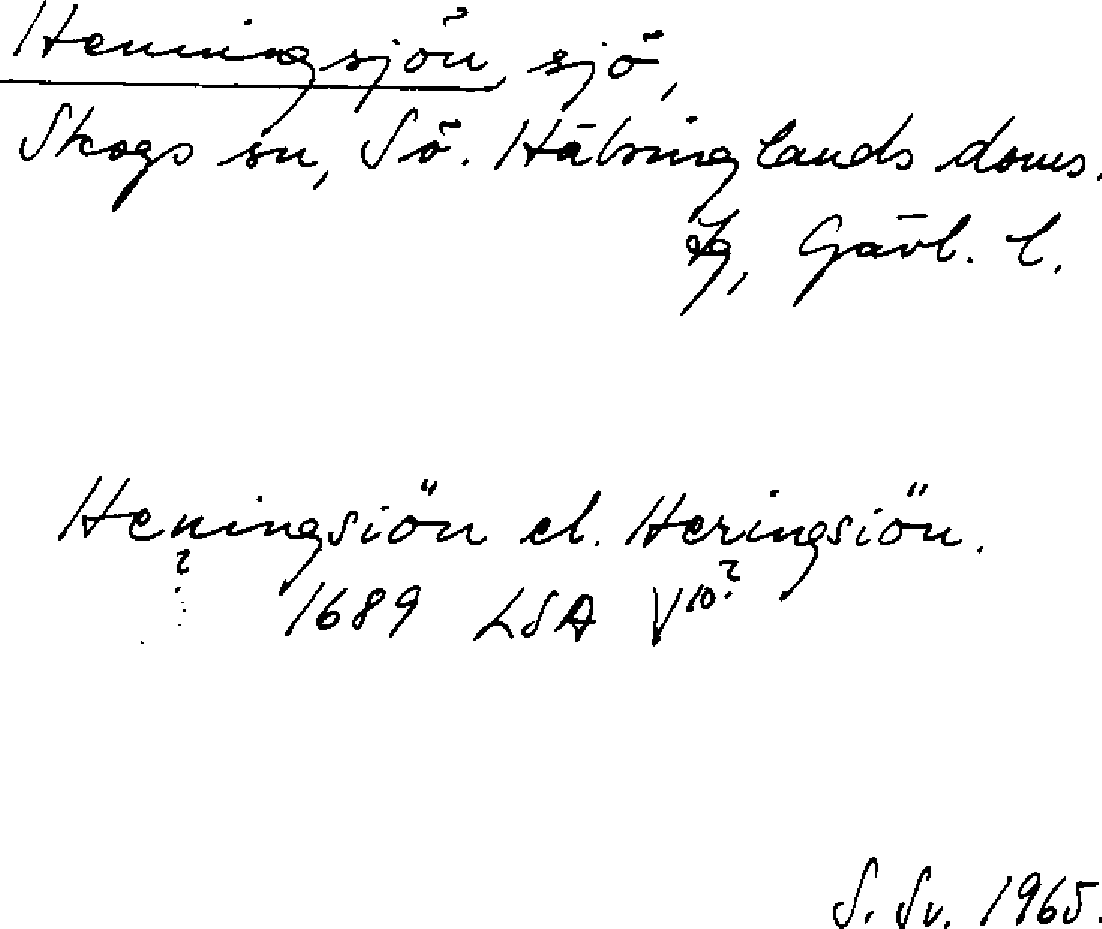 Henningsjön, sjö,
Skogs sn, Sö. Hälsinglands doms.
Gävl. l.
Heningsiön el. Heringsiön.
?
1689 LSA V 10?
S. Sv. 1965.